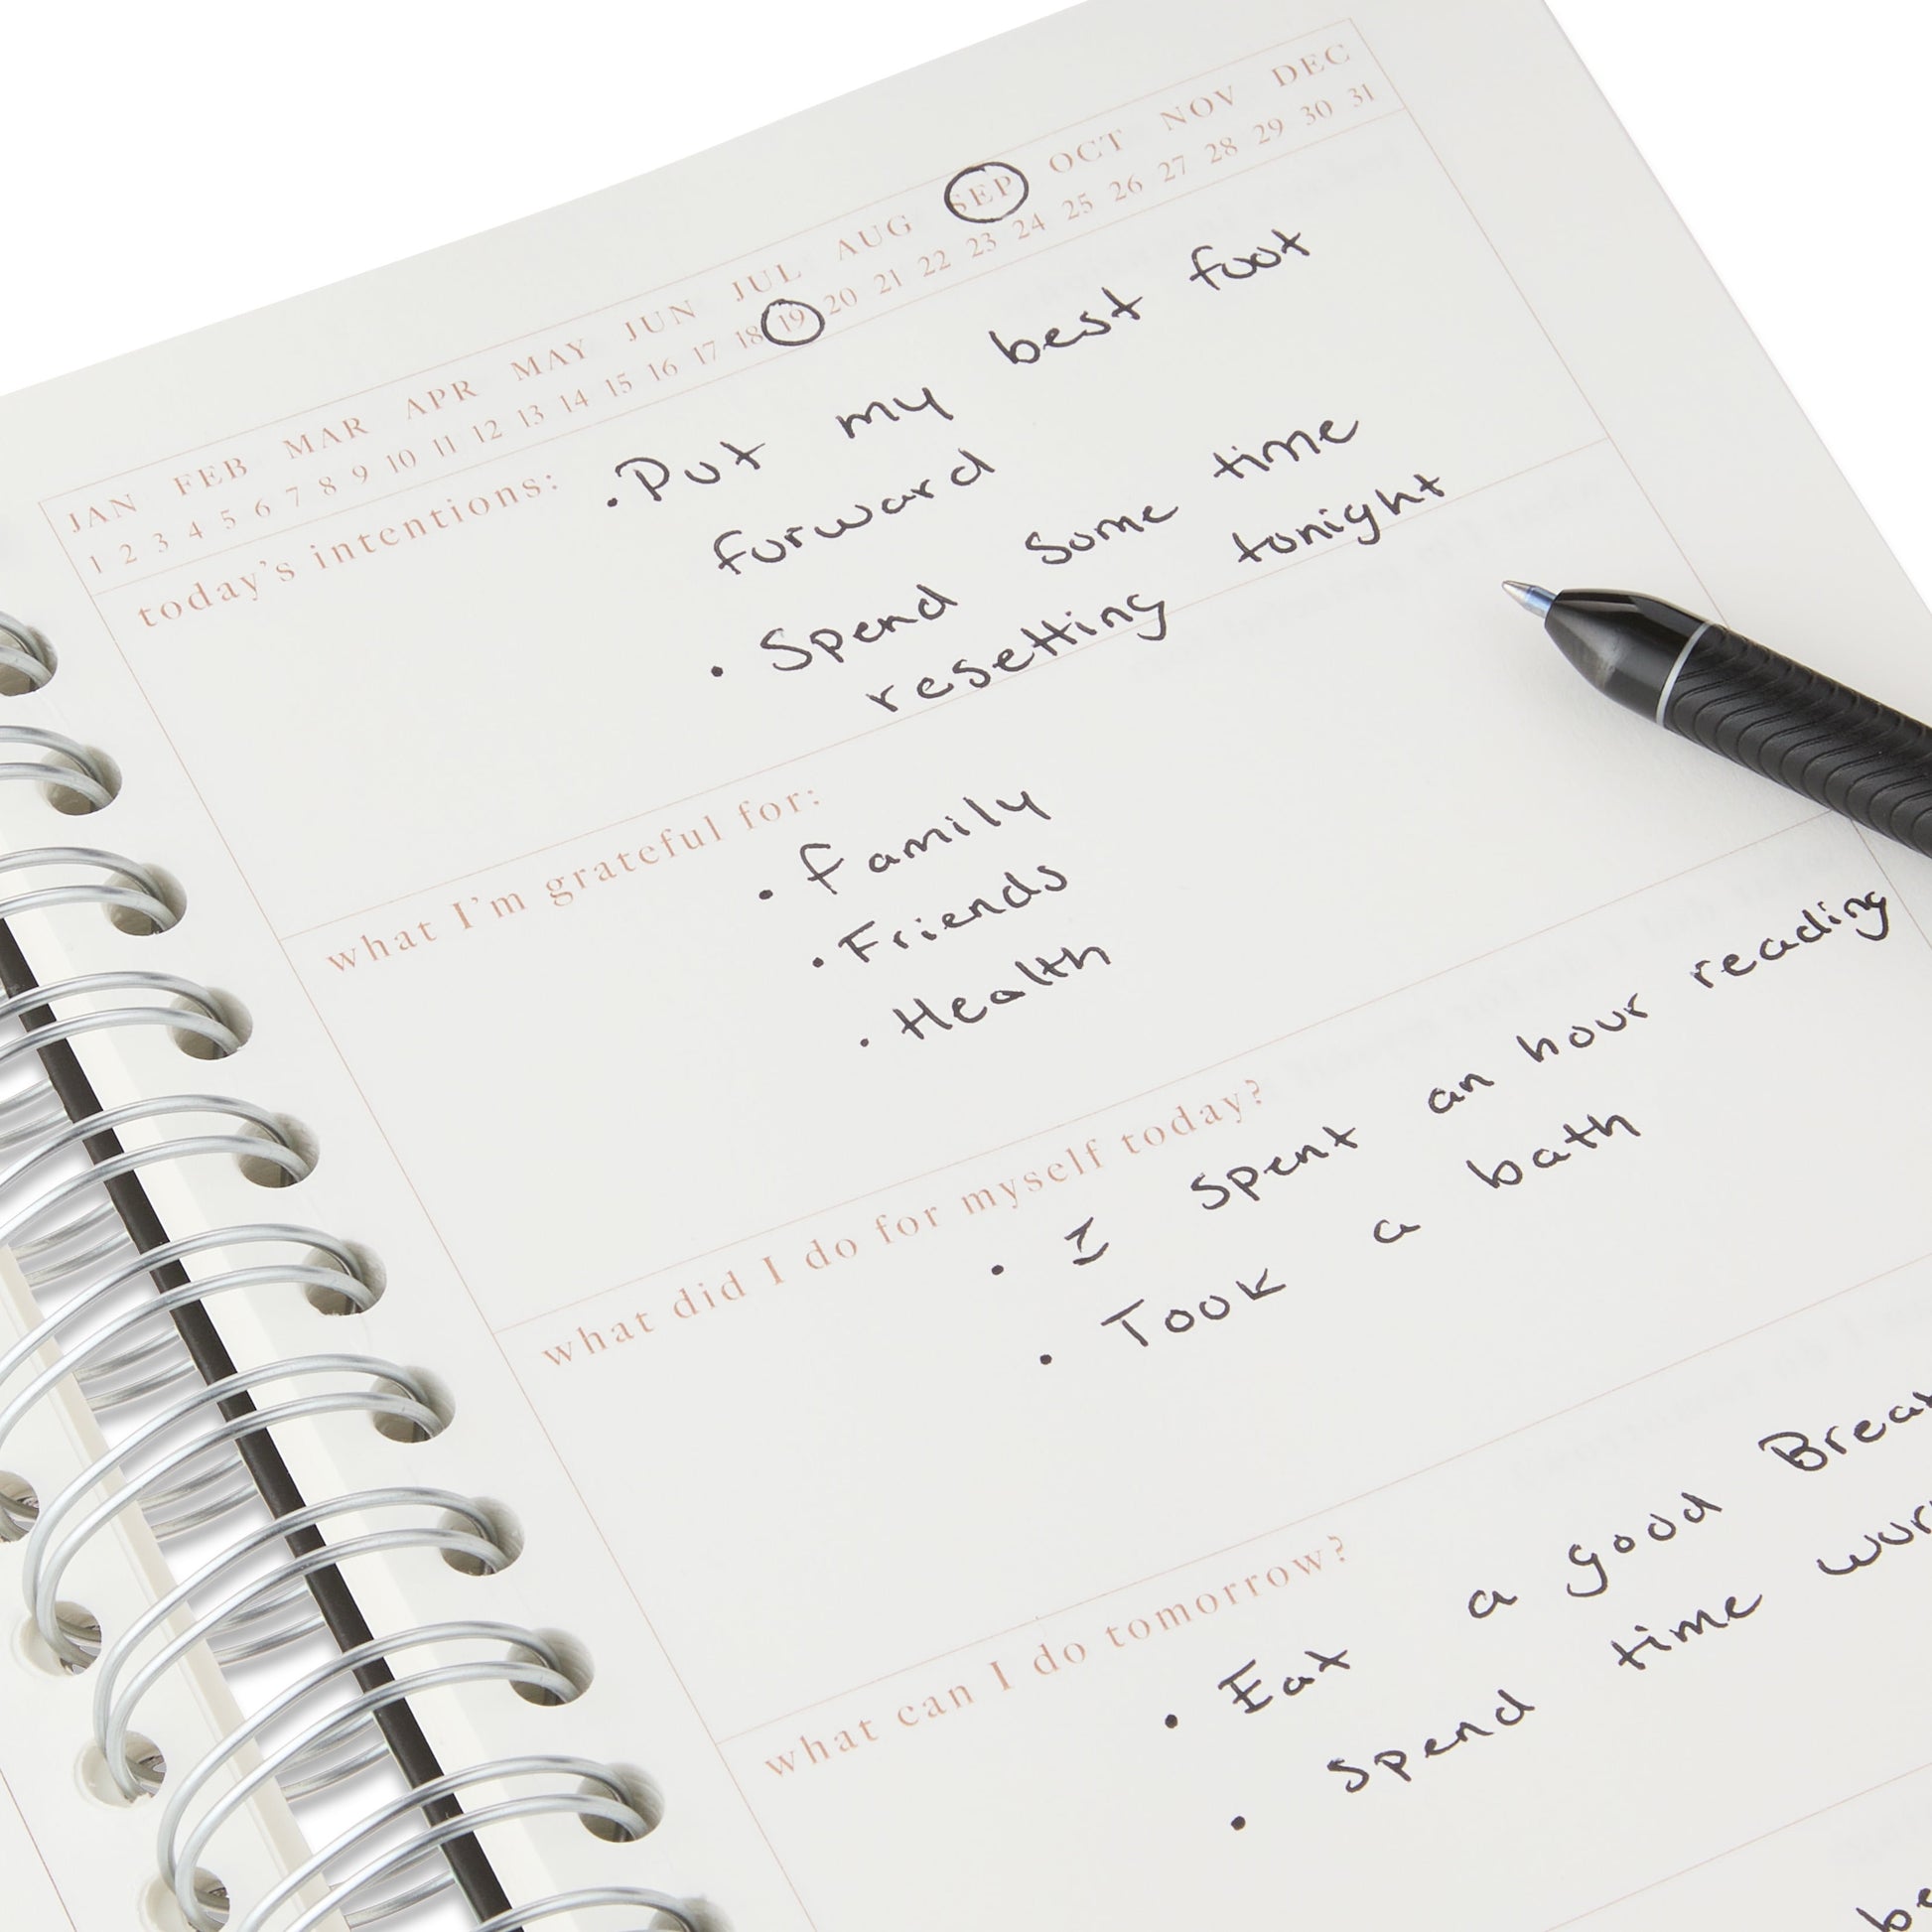 JAN FEB MAR APR MAY JUN JUL AUG SEP OCT NOV DEC
1 2 3 4 5 6 7 8 9 10 11 12 13 14 15 16 17 18 19 20 21 22 23 24 25 26 27 28 29 30 31
today's intentions: • Put my best foot
forward
• Spend some time
resetting tonight
what I'm grateful for:
• Family
• Friends
• Health
what did I do for myself today?
• I spent an hour reading
• Took a bath
what can I do tomorrow?
• Eat a good
• Spend time